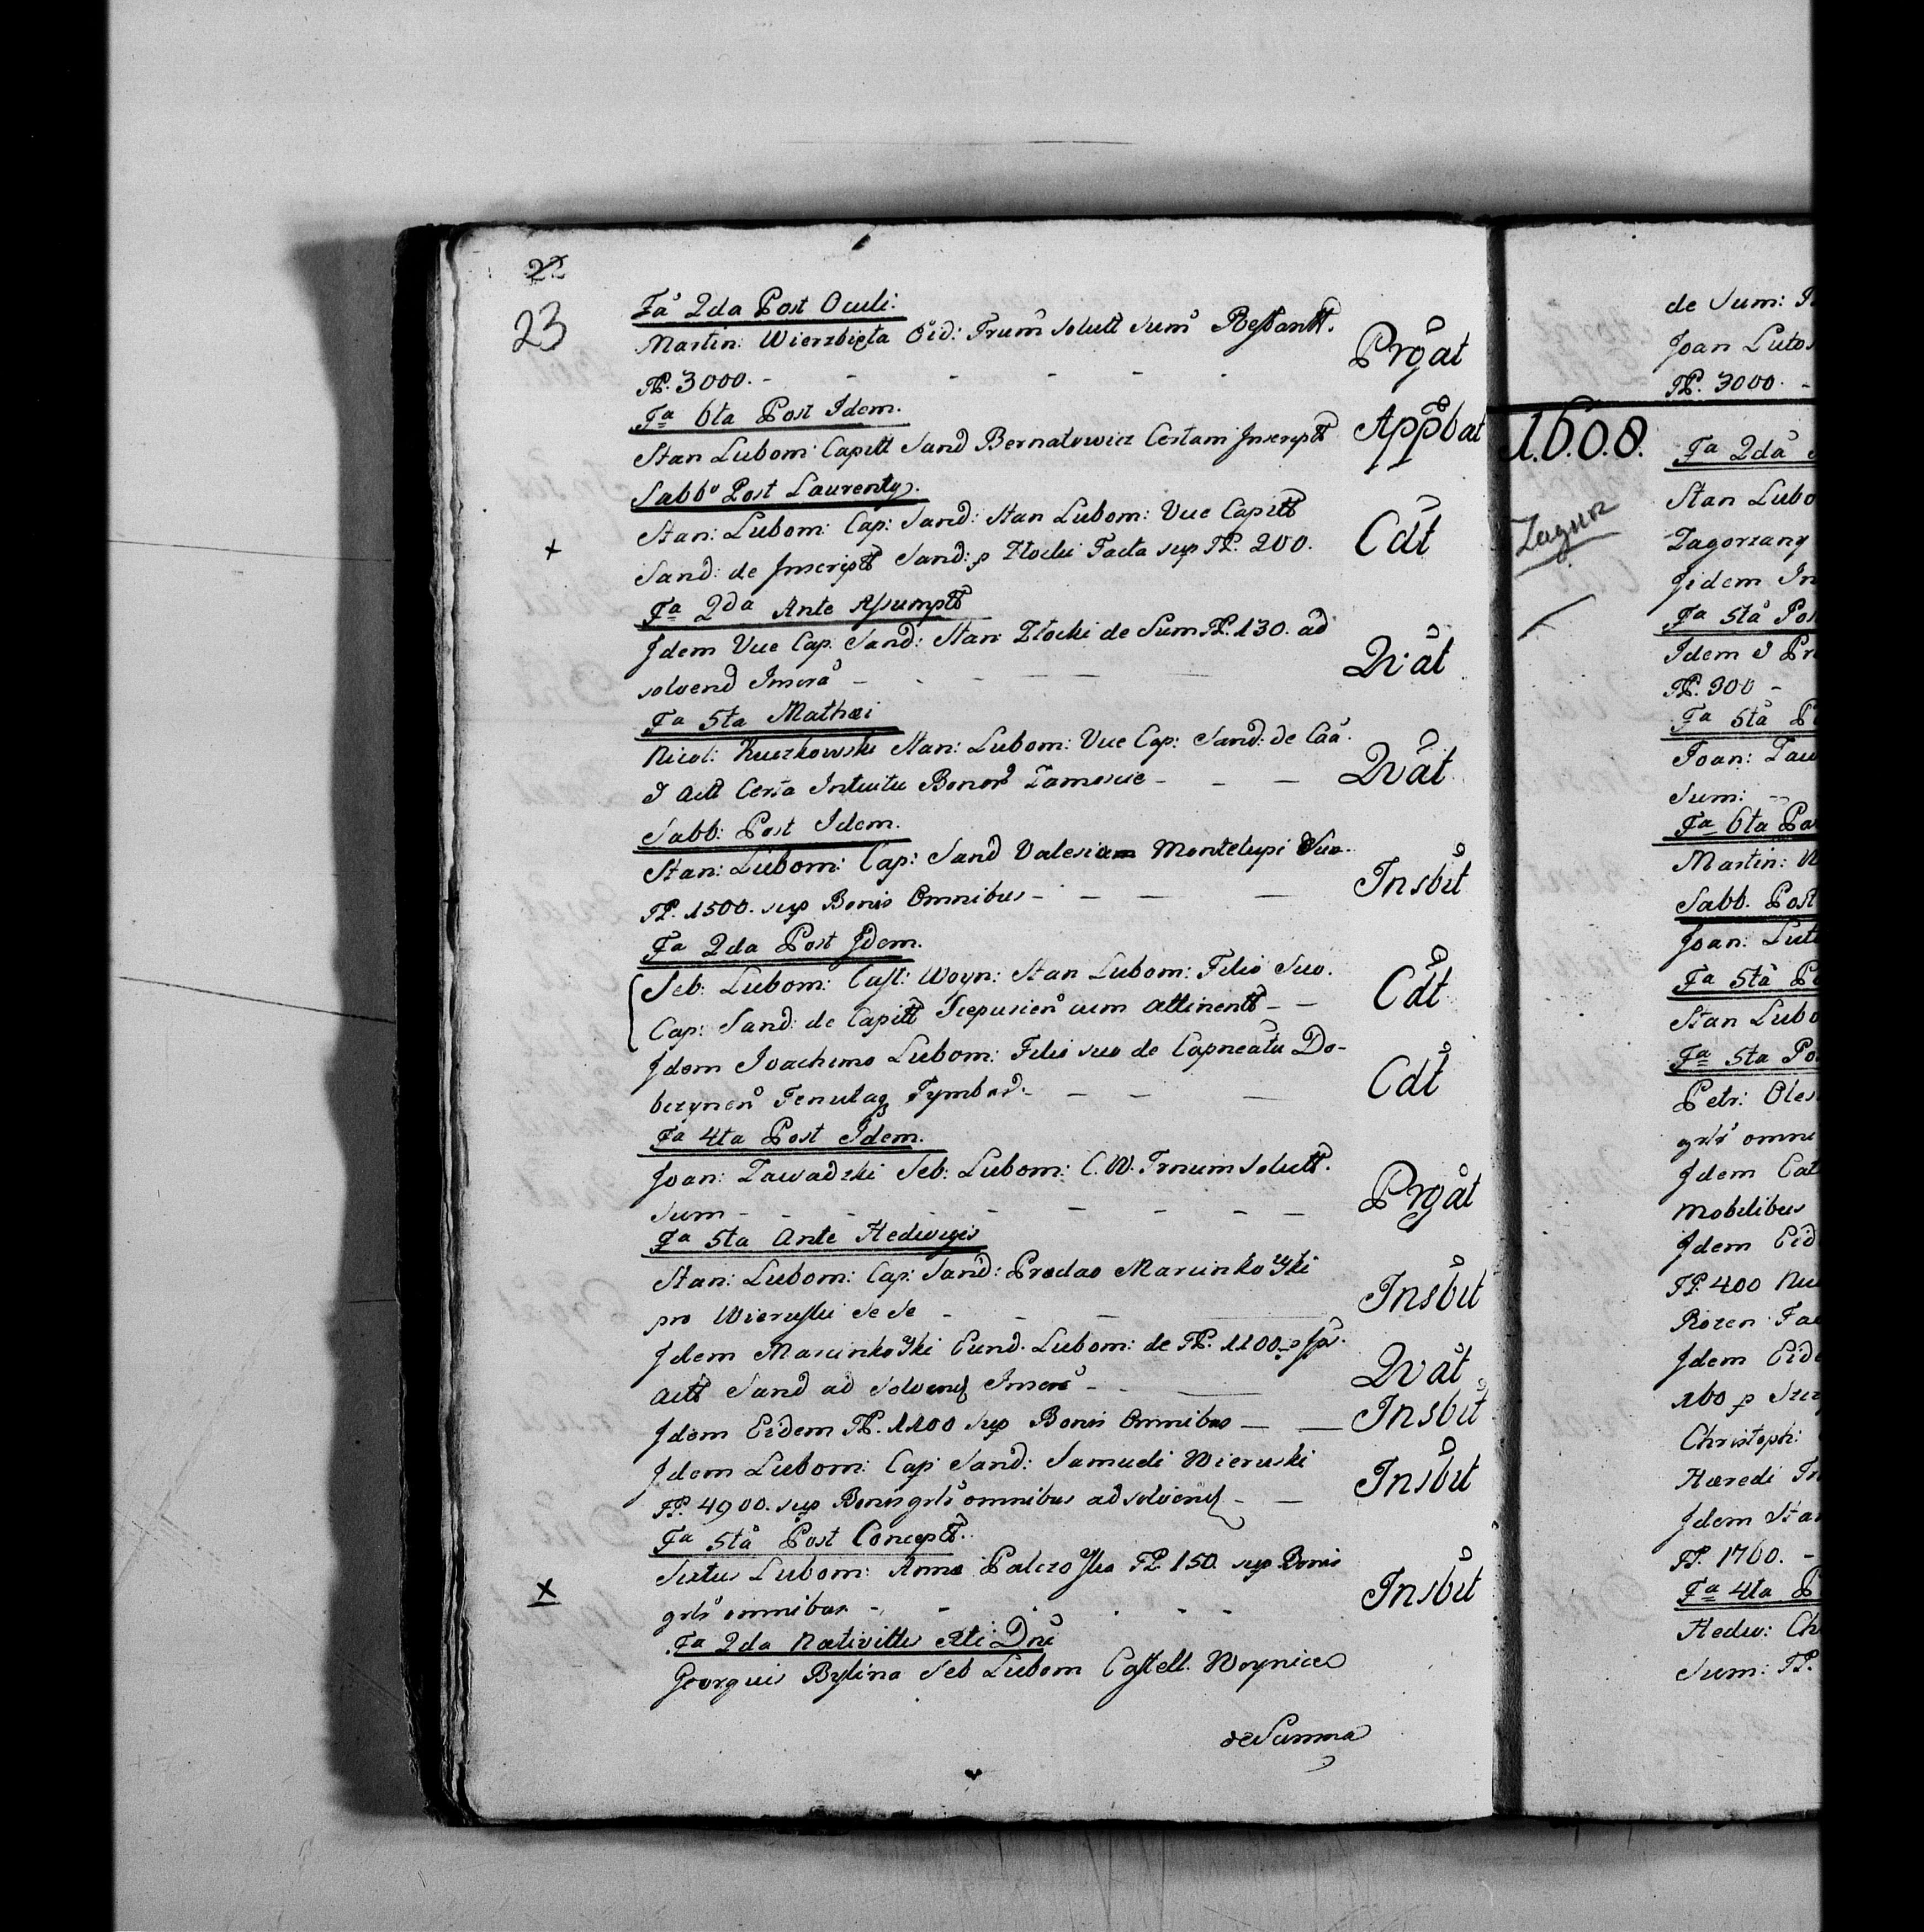 22
23
Fa 2da Post Oculi:
Martin: Wierzbięta Eid: Trum solutt sum Restantt.
Prgat
FP. 3000. -
Fa 6ta Post Idem.
Stan Lubom: Capitt Sand Bernatowicz Certam Inscriptt
Appbat
Sabbo Post Laurenty.
Stan: Lubom: Cap: Sand: Stan Lubom: Vice Capitt
x
Cdt
Sand: de Inscriptt Sand: p Złocki Facta sup FP. 200.
Fa 2da Ante Assumptt
Idem Vice Cap. Sand: Stan Złocki de Sum FP. 130. ad
Qvat
solvend Inscra -
Fa 5ta Mathæi
Nicol: Kuczkowski Stan: Lubom: Vice Cap: Sand: de Caa.
Qvat
& Actt Certa Intuitu Bonor Zamoscie -
Sabb: Post Idem.
Stan: Lubom: Cap: Sand Valerian Montelupi Suo.
Insbit
FP. 1500. sup Bonis Omnibus -
Fa 2da Post Idem.
Seb: Lubom: Cast: Woyn: Stan Lubom: Filio Suo.
Cdt
Cap: Sand: de Capitt Scepusien cum attinentt - -
Idem Joachimo Lubom: Filio suo de Capneatu Do-
Cdt
bczynen Tenutaq Tymbar. -
Fa 4ta Post Idem.
Joan: Zawadzki Seb: Lubom: C.W. Trnum solutt.
Prgat
Sum -
Fa 5ta Ante Hedwigis
Stan: Lubom: Cap: Sand: Marcinkoski
Insbit
pro Wieruski se se -
Idem Marcinkoski Eund. Lubom: de FP. 1100
Qvat
Actt Sand ad solvend Inscr -
Idem Eidem FP. 1100 sup Bonis Omnibus —
Insbit
Idem Lubom: Cap Sand: Samueli Wieruski
Insbit
FP. 4900. sup Bonis grls omnibus ad solvend -
Fa 5ta Post Conceptt.
Sixtus Lubom: Anna FP. 150. sup Bonis
x
Insbit
grls omnibus -
Fa 2da Nativittis Xti Dni
Georgius Bylina Seb Lubom Castell. Woynice
de Summa
de Sum:
Joan Lutos
FP. 3000. -
1608.
Fa 2da
Zagur
Stan Lubo
Zagorzany
Iidem In
Fa 5ta Pos
Idem & Pr
FP. 300 -
Fa 5ta P
Joan: Zaw
Sum: -
Fa 6ta Po
Martin: W
Sabb. Post
Joan: Lut
Fa 5ta Po
Stan Lubo
Fa 5ta Po
Petr: Oles
grls omni
Idem Cat
mobilibus
Idem Eid
FP. 400 Nu
Rozen Fac
Idem Eide
160 p
Christoph:
Hæredi In
Idem Stan
FP. 1760. -
Fa 4ta P
Hedw: Ch
Sum: FP.